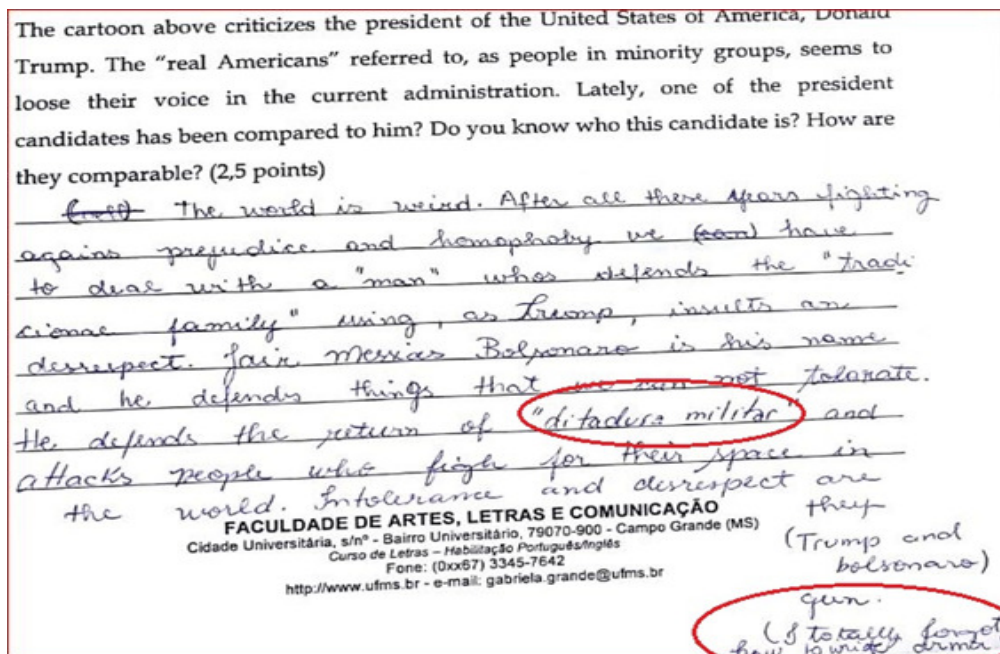 The cartoon above criticizes the president of the United States of America, Donald
Trump. The “real Americans” referred to, as people in minority groups, seems to
loose their voice in the current administration. Lately, one of the president
candidates has been compared to him? Do you know who this candidate is? How are
they comparable? (2,5 points)
The world is weird. After all these years fighting
agains prejudice and homophoby we have
to deal with a "man" whos defends the "tradi
cional family" using, as Trump, insults an
desrespect. Jair Messias Bolsonaro is his name
and he defends things that we can not tolarate.
He defends the return of "ditadura militar" and
attacks people who figh for their space in
the world. Intolerance and desrespect are
they
(Trump and
bolsonaro)
gun.
(I totally forgot
how to write arma
FACULDADE DE ARTES, LETRAS E COMUNICAÇÃO
Cidade Universitária, s/nº - Bairro Universitário, 79070-900 - Campo Grande (MS)
Curso de Letras – Habilitação Português/Inglês
Fone: (0xx67) 3345-7642
http://www.ufms.br - e-mail: gabriela.grande@ufms.br